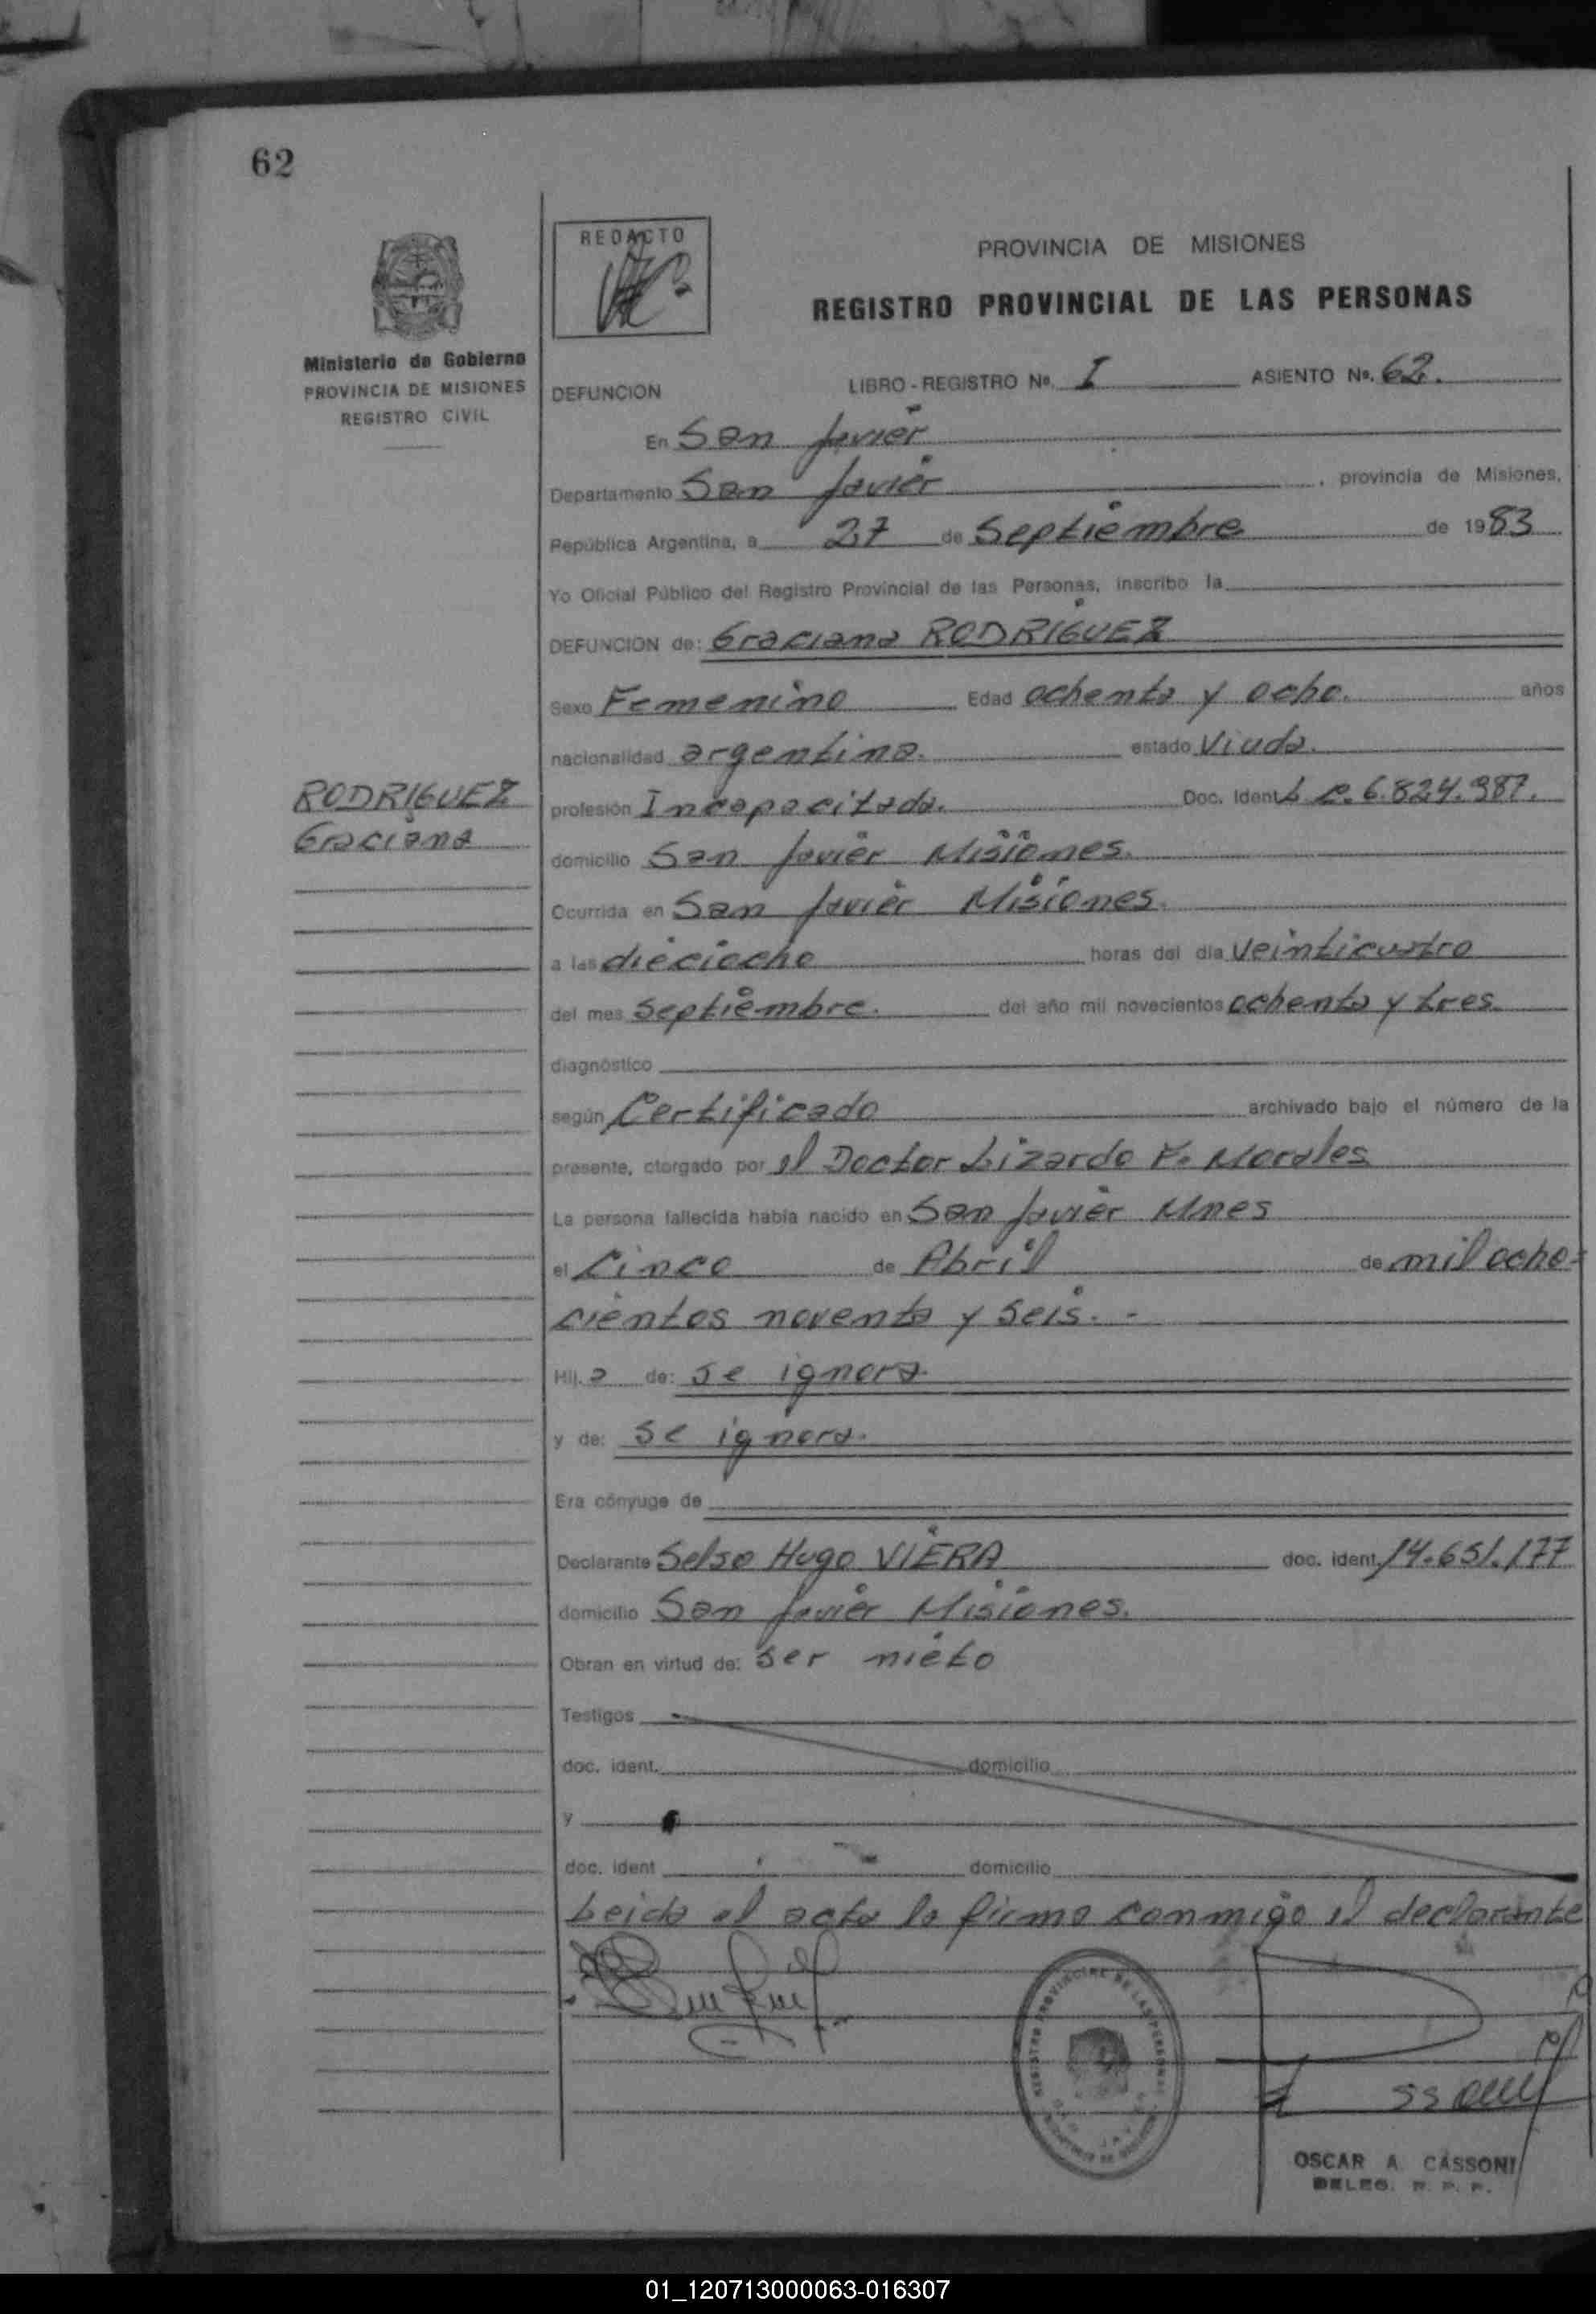 62
REDACTO
PROVINCIA DE MISIONES
REGISTRO PROVINCIAL DE LAS PERSONAS
Ministerio de Gobierno
PROVINCIA DE MISIONES
REGISTRO CIVIL
DEFUNCION LIBRO - REGISTRO Nº. I ASIENTO Nº. 62.
En San Javier
Departamento San Javier , provincia de Misiones,
República Argentina, a 27 de Septiembre de 1983
Yo Oficial Público del Registro Provincial de las Personas, inscribo la
DEFUNCION de: Graciana RODRIGUEZ
Sexo Femenino Edad ochenta y ocho. años
nacionalidad argentina. estado Viuda.
RODRIGUEZ
Graciana
profesión Incapacitada. Doc. Ident. L C. 6.824.987.
domicilio San Javier Misiones.
Ocurrida en San Javier Misiones.
a las dieciocho horas del día veinticuatro
del mes Septiembre. del año mil novecientos ochenta y tres.
diagnóstico
según Certificado archivado bajo el número de la
presente, otorgado por el Doctor Lizardo F. Morales
La persona fallecida había nacido en San Javier Mnes
el Cinco de Abril de mil ocho-
cientos noventa y seis. -
Hij.a de: se ignora.
y de: se ignora.
Era cónyuge de
Declarante Selso Hugo VIERA doc. ident. 14.651.177
domicilio San Javier Misiones.
Obran en virtud de: ser nieto
Testigos
doc. ident. domicilio
y
doc. ident domicilio
Leida el acta la firma conmigo el declarante
REGISTRO PROVINCIAL DE LAS PERSONAS
OSCAR A. CASSONI
DELEG. R. P. P.
01_120713000063-016307